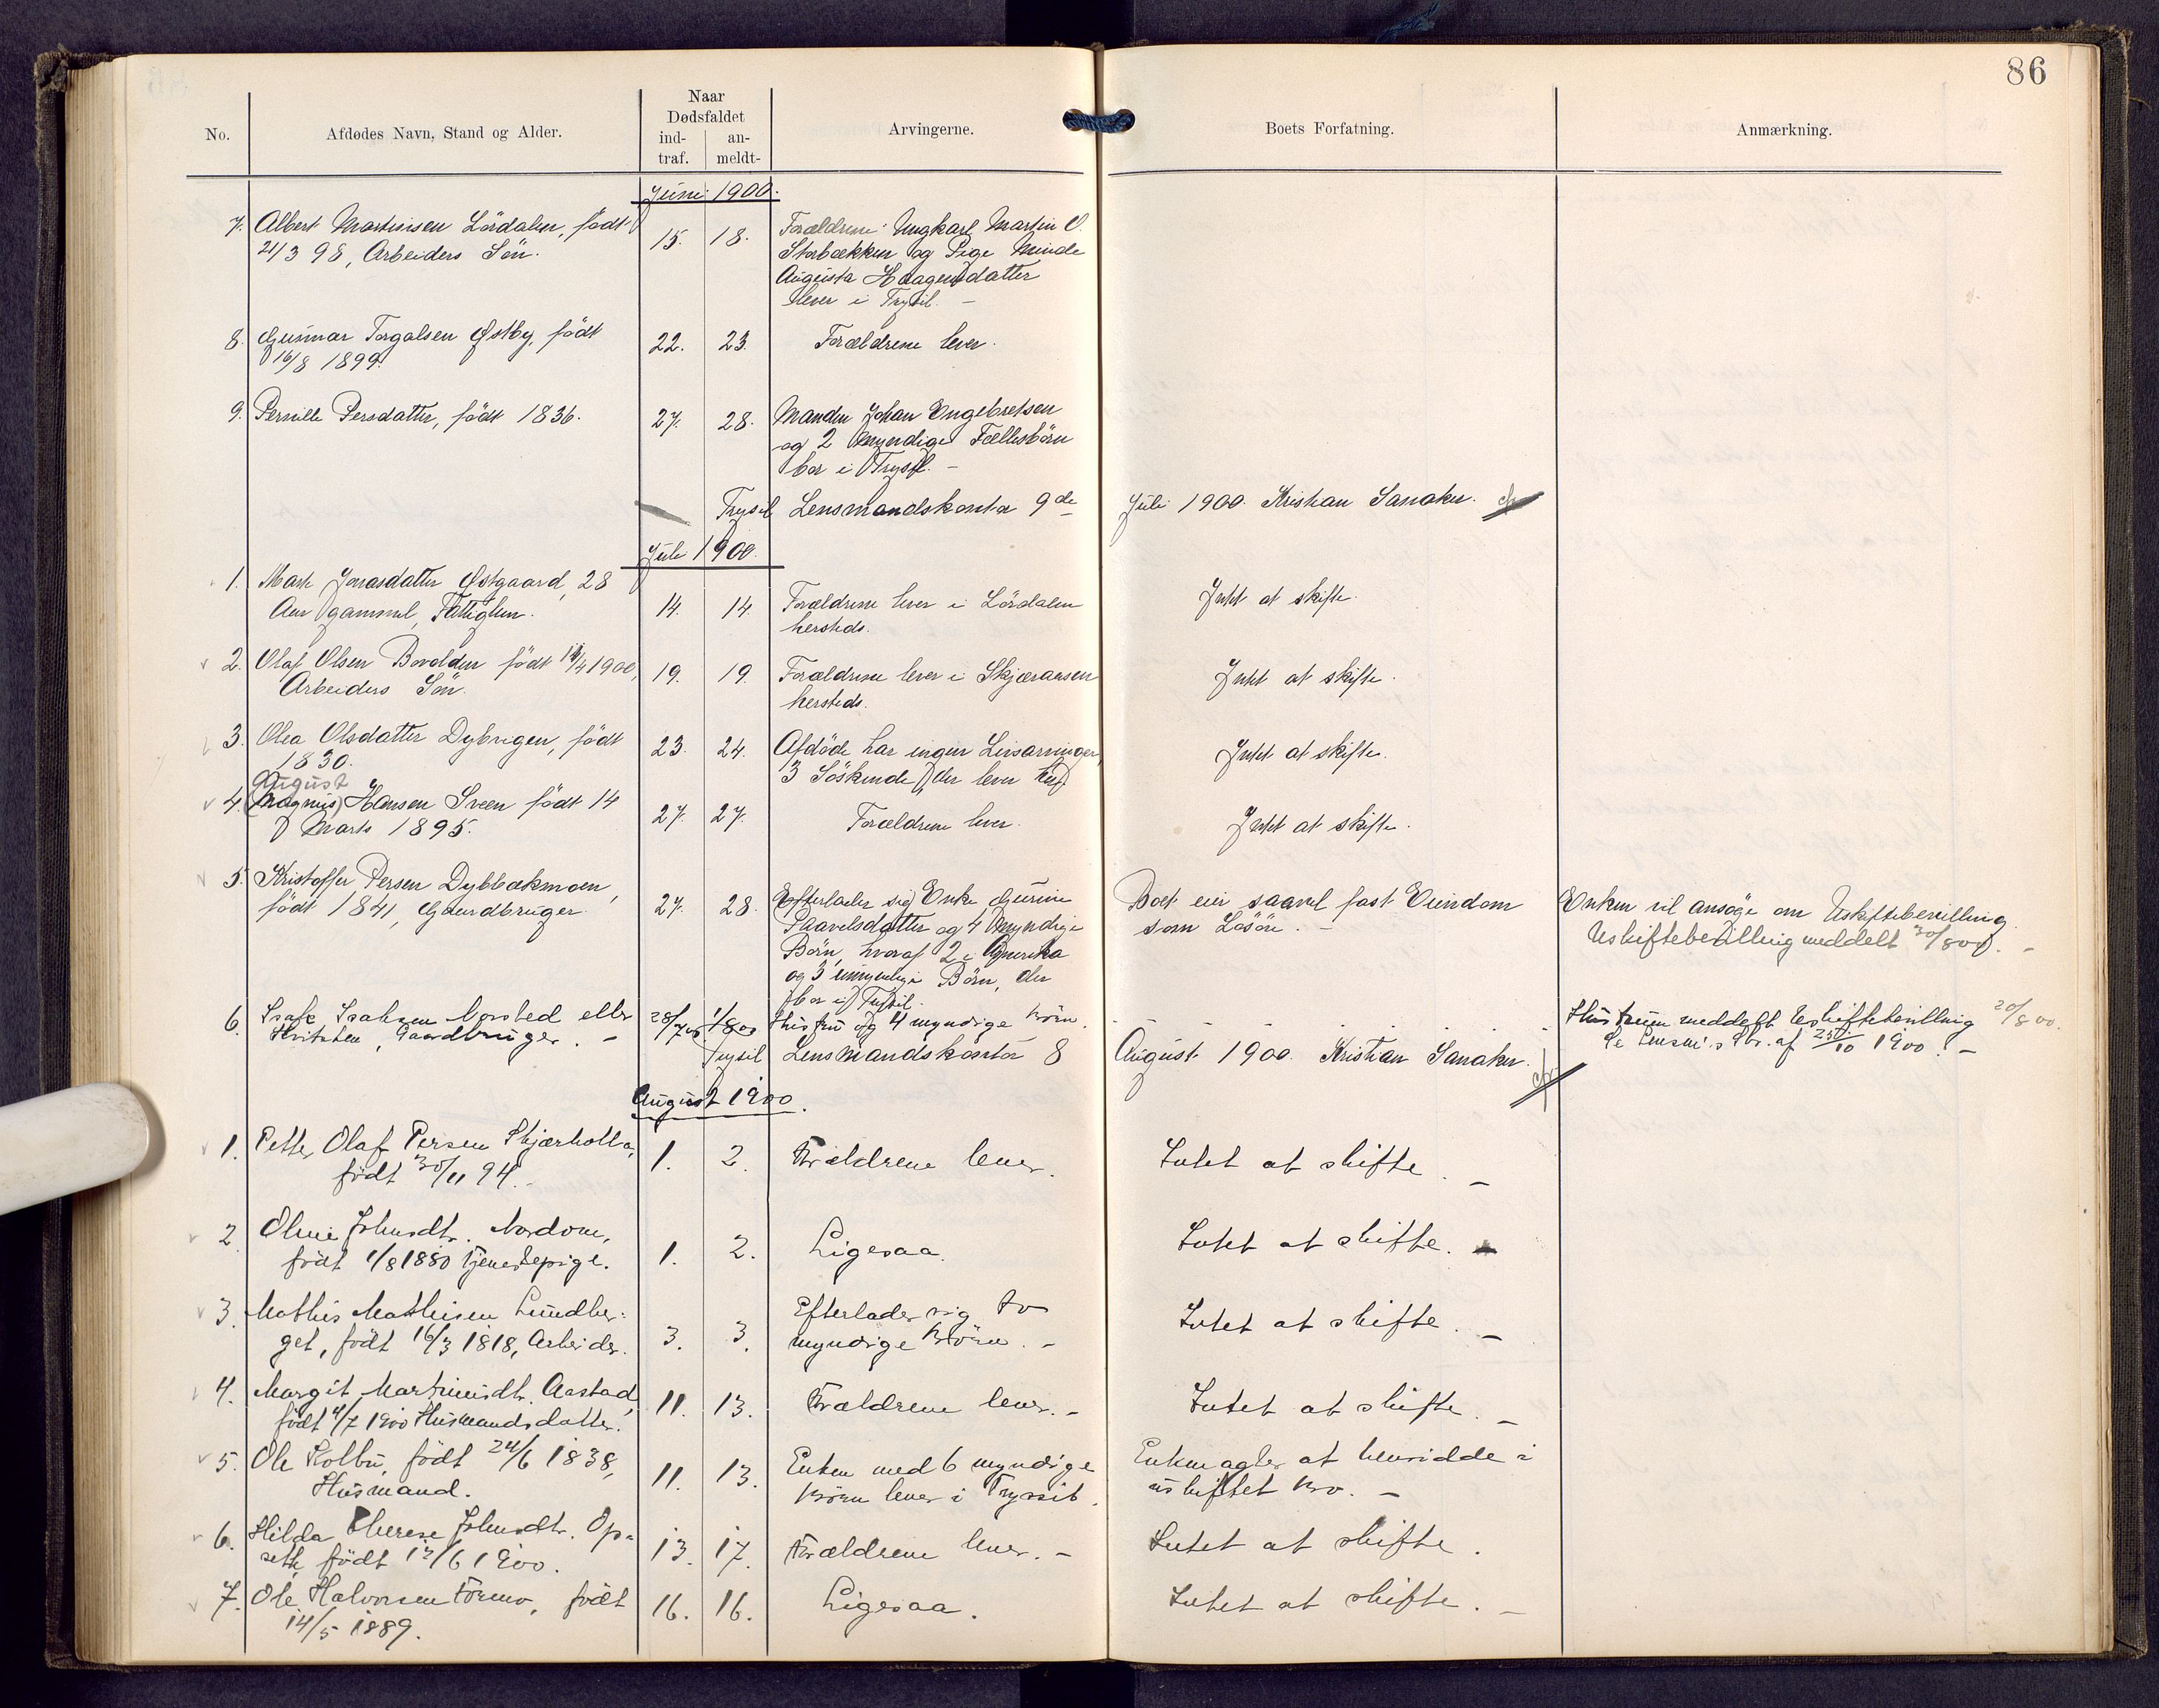 86
No.
Afdødes Navn, Stand og Alder.
Naar
Dødsfaldet
ind-
traf.
an-
meldt-
Arvingerne.
Boets Forfatning.
Anmærkning.
Juni 1900.
7. Albert Martinisen Lördalen, födt
21/3 98, Arbeiders Sön.
15. 18.
Forældrene: Ungkarl Martin O.
Storbækken og Pige Minda
Augusta Haagensdatter
lever i Trysil. –
8. Gunnar Torgalsen Østby, födt
16/8 1899.
22. 23.
Forældrene lever.
9. Pernille Persdatter, födt 1836.
27. 28.
Manden Johan Engebretsen
og 2 myndige Fællesbörn
bor i Trysil. –
Trysil Lensmandskontor 9de Juli 1900. Kristian Sanaker.
Juli 1900.
1. Mari Jonasdatter Østgaard, 28
Aar gammel, Fattiglem.
14. 14.
Forældrene lever i Lördalen
hersteds.
Intet at skifte.
2. Olaf Olsen Borolden födt 14/4 1900,
Arbeiders Sön.
19. 19.
Forældrene lever i Skjæraasen
hersteds.
Intet at skifte.
3. Olea Olsdatter Dybvigen, födt
1830.
23. 24.
Afdöde har ingen Livsarvinger,
3 Söskende, der lever her.
Intet at skifte.
August
4. (Magnus) Hansen Sveen födt 14
Marts 1895.
27. 27.
Forældrene lever.
Intet at skifte.
5. Kristoffer Persen Dybbækmoen,
födt 1841, Gaardbruger.
27. 28.
Efterlader sig Enke Gurine
Paavelsdatter og 4 myndige
Börn, hvoraf 2 i Amerika
og 3 umyndige Börn, der
bor i Trysil.
Boet eier saavel fast Eiendom
som Lösöre. –
Enken vil ansöge om Uskiftebevilling.
Uskiftebevilling meddelt 30/8 00. –
6. Isak Isaksen Norsted eller
Kvitsten, Gaardbruger. –
28/7 00 1/8 00
Hustru og 4 myndige Börn.
Hustruen meddelt Uskiftebevilling 20/8 00.
af 25/10 1900. –
Trysil Lensmandskontor 8 August 1900. Kristian Sanaker.
August 1900.
1. Petter Olaf Persen Skjærholla,
födt 30/11 94. –
1. 2.
Forældrene lever.
Intet at skifte. –
2. Oline Johnsdtr. Nordom,
födt 1/8 1880 Tjenestepige.
1. 2.
Ligesaa.
Intet at skifte. –
3. Mathis Mathisen Lundber-
get, födt 16/3 1818, Arbeider.
3. 3.
Efterlader sig to
myndige Börn. –
Intet at skifte. –
4. Margit Martinusdtr. Aastad,
födt 4/7 1900 Husmandsdatter.
11. 13.
Forældrene lever. –
Intet at skifte. –
5. Ole Kolbu, födt 24/6 1838,
Husmand.
11. 13.
Enken med 6 myndige
Börn lever i Trysil.
Enken agter at hensidde i
uskiftet Bo. –
6. Hilda Therese Johnsdtr. Op-
seth, födt 12/6 1900.
13. 17.
Forældrene lever. –
Intet at skifte.
7. Ole Halvorsen Formo, födt
14/5 1889.
16. 16.
Ligesaa.
Intet at skifte. –